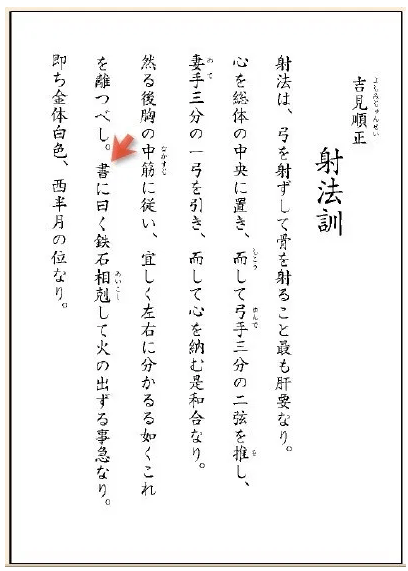 よしみじゅんせい
吉見順正
射法訓
射法は、弓を射ずして骨を射ること最も肝要なり。
しこう ゆんで を
心を総体の中央に置き、而して弓手三分の二弦を推し、
めて
妻手三分の一弓を引き、而して心を納む是和合なり。
なかすじ
然る後胸の中筋に従い、宜しく左右に分かるる如くこれ
あいこし
を離つべし。書に曰く鉄石相剋して火の出ずる事急なり。
即ち金体白色、西半月の位なり。